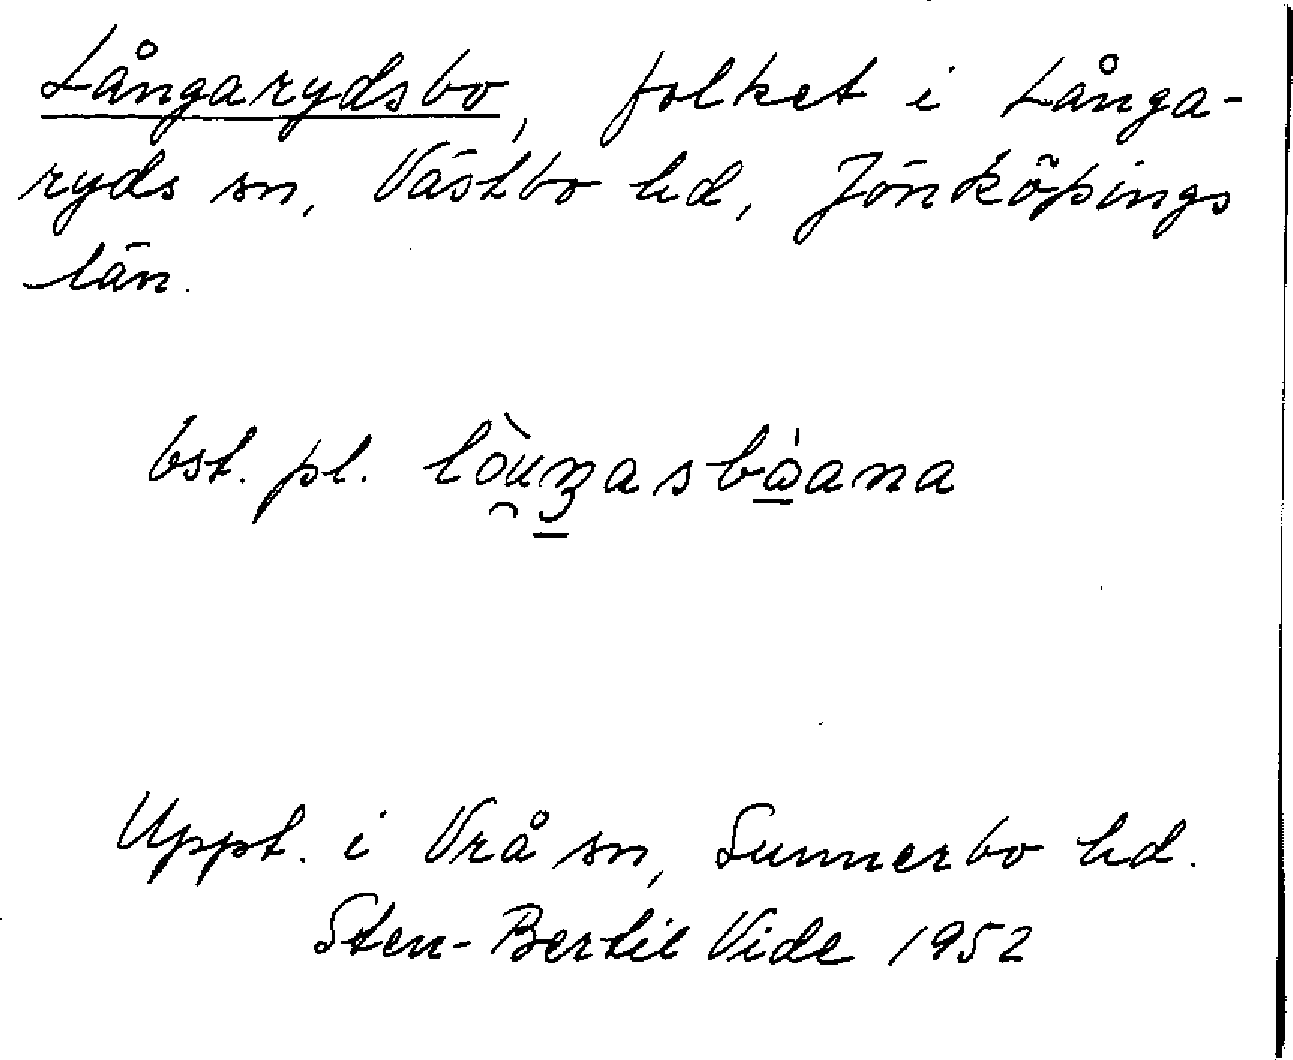 Långarydsbo, folket i Långa-
ryds sn, Västbo hd, Jönköpings
län.
bst. pl.
Uppt. i Vrå sn, Sunnerbo hd.
Sten-Bertil Vide 1952